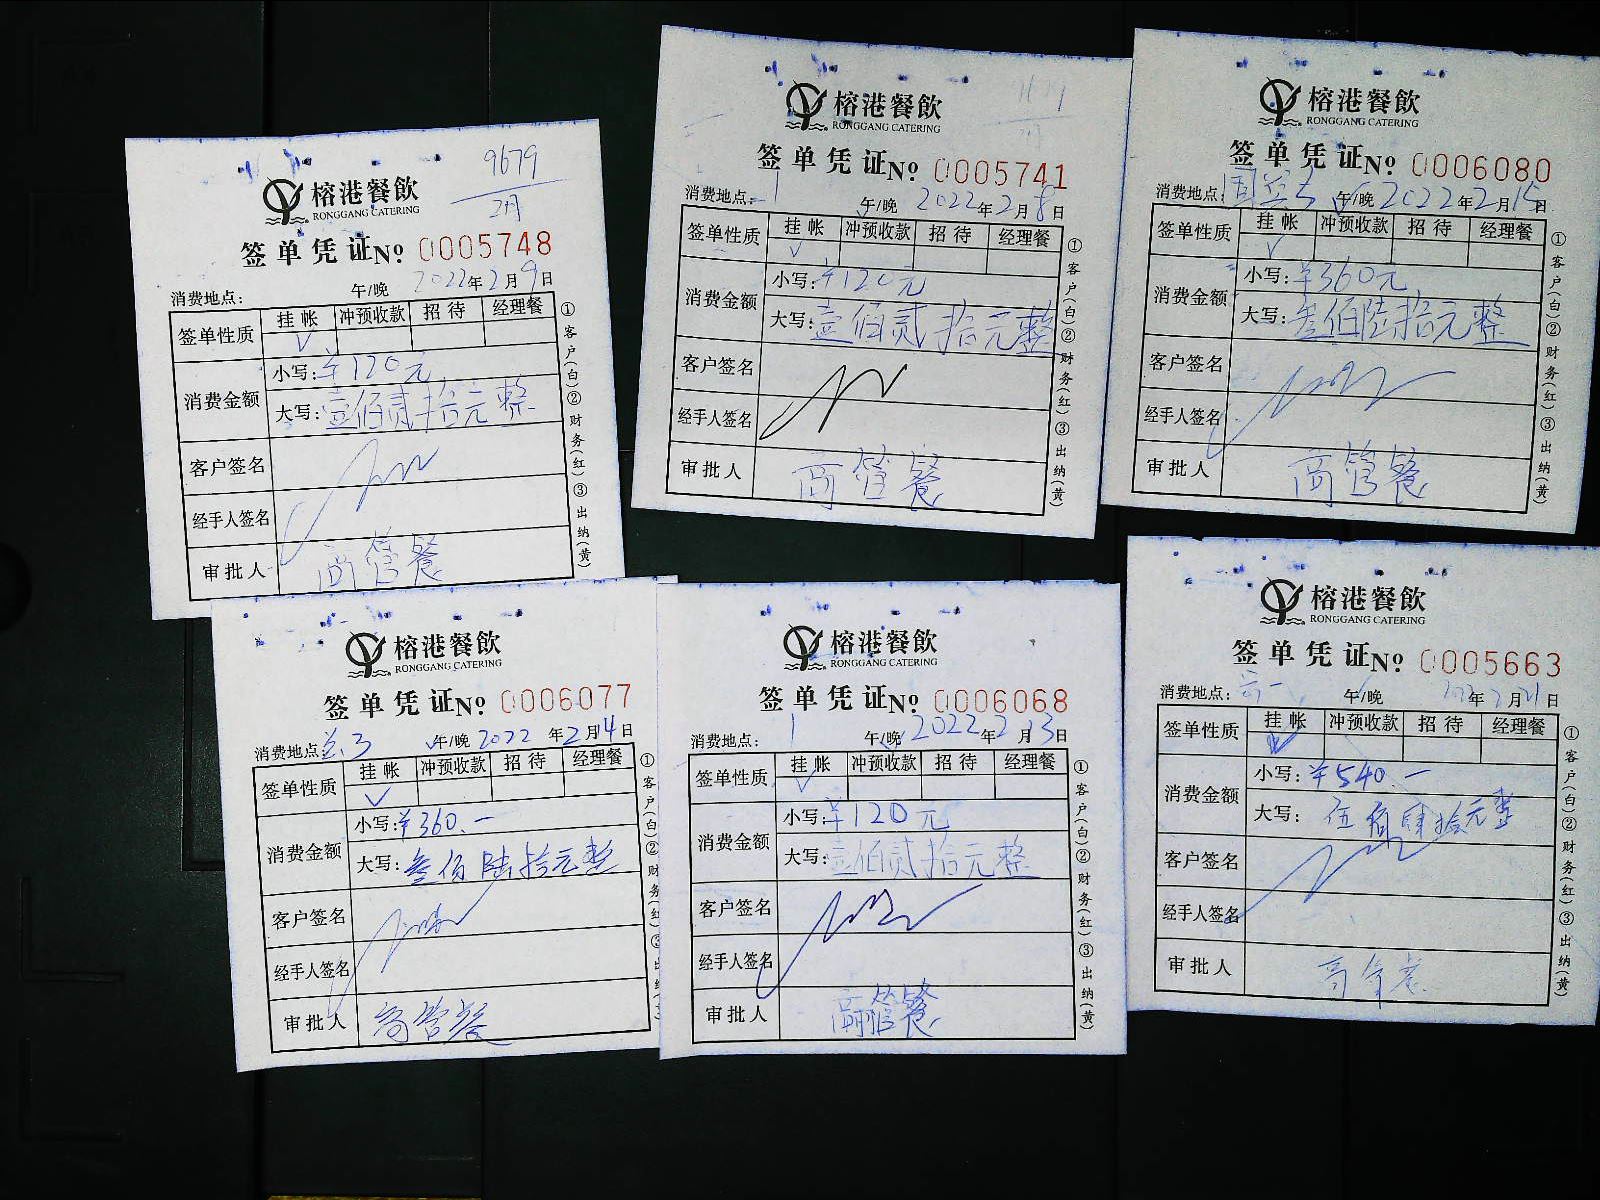 榕港餐飲
RONGGANG CATERING
9679
2月
签单凭证No 0005748
消费地点: 午/晚 2022年2月9日
签单性质 挂帐 冲预收款 招待 经理餐
√
消费金额 小写:¥120元
大写:壹佰贰拾元整
客户签名
经手人签名
审批人 商管餐
①客户(白)②财务(红)③出纳(黄)
榕港餐飲
RONGGANG CATERING
签单凭证No 0005741
消费地点: 1 午/晚 2022年2月8日
签单性质 挂帐 冲预收款 招待 经理餐
√
消费金额 小写:¥120元
大写:壹佰贰拾元整
客户签名
经手人签名
审批人 商管餐
①客户(白)②财务(红)③出纳(黄)
榕港餐飲
RONGGANG CATERING
签单凭证No 0006080
消费地点: 午/晚 2022年2月15日
签单性质 挂帐 冲预收款 招待 经理餐
√
消费金额 小写:¥360元
大写:叁佰陆拾元整
客户签名
经手人签名
审批人 商管餐
①客户(白)②财务(红)③出纳(黄)
榕港餐飲
RONGGANG CATERING
签单凭证No 0006077
消费地点 兰.3 √午/晚 2022年2月14日
签单性质 挂帐 冲预收款 招待 经理餐
√
消费金额 小写:¥360.一
大写:叁佰陆拾元整
客户签名
经手人签名
审批人 商管餐
①客户(白)②财务(红)③出纳
榕港餐飲
RONGGANG CATERING
签单凭证No 0006068
消费地点: 1 午/晚 2022年2月13日
签单性质 挂帐 冲预收款 招待 经理餐
√
消费金额 小写:¥120元
大写:壹佰贰拾元整
客户签名
经手人签名
审批人 商管餐
①客户(白)②财务(红)③出纳(黄)
榕港餐飲
RONGGANG CATERING
签单凭证No 0005663
消费地点: 午/晚 年2月21日
签单性质 挂帐 冲预收款 招待 经理餐
√
消费金额 小写:¥540.一
大写:伍佰肆拾元整
客户签名
经手人签名
审批人
①客户(白)②财务(红)③出纳(黄)